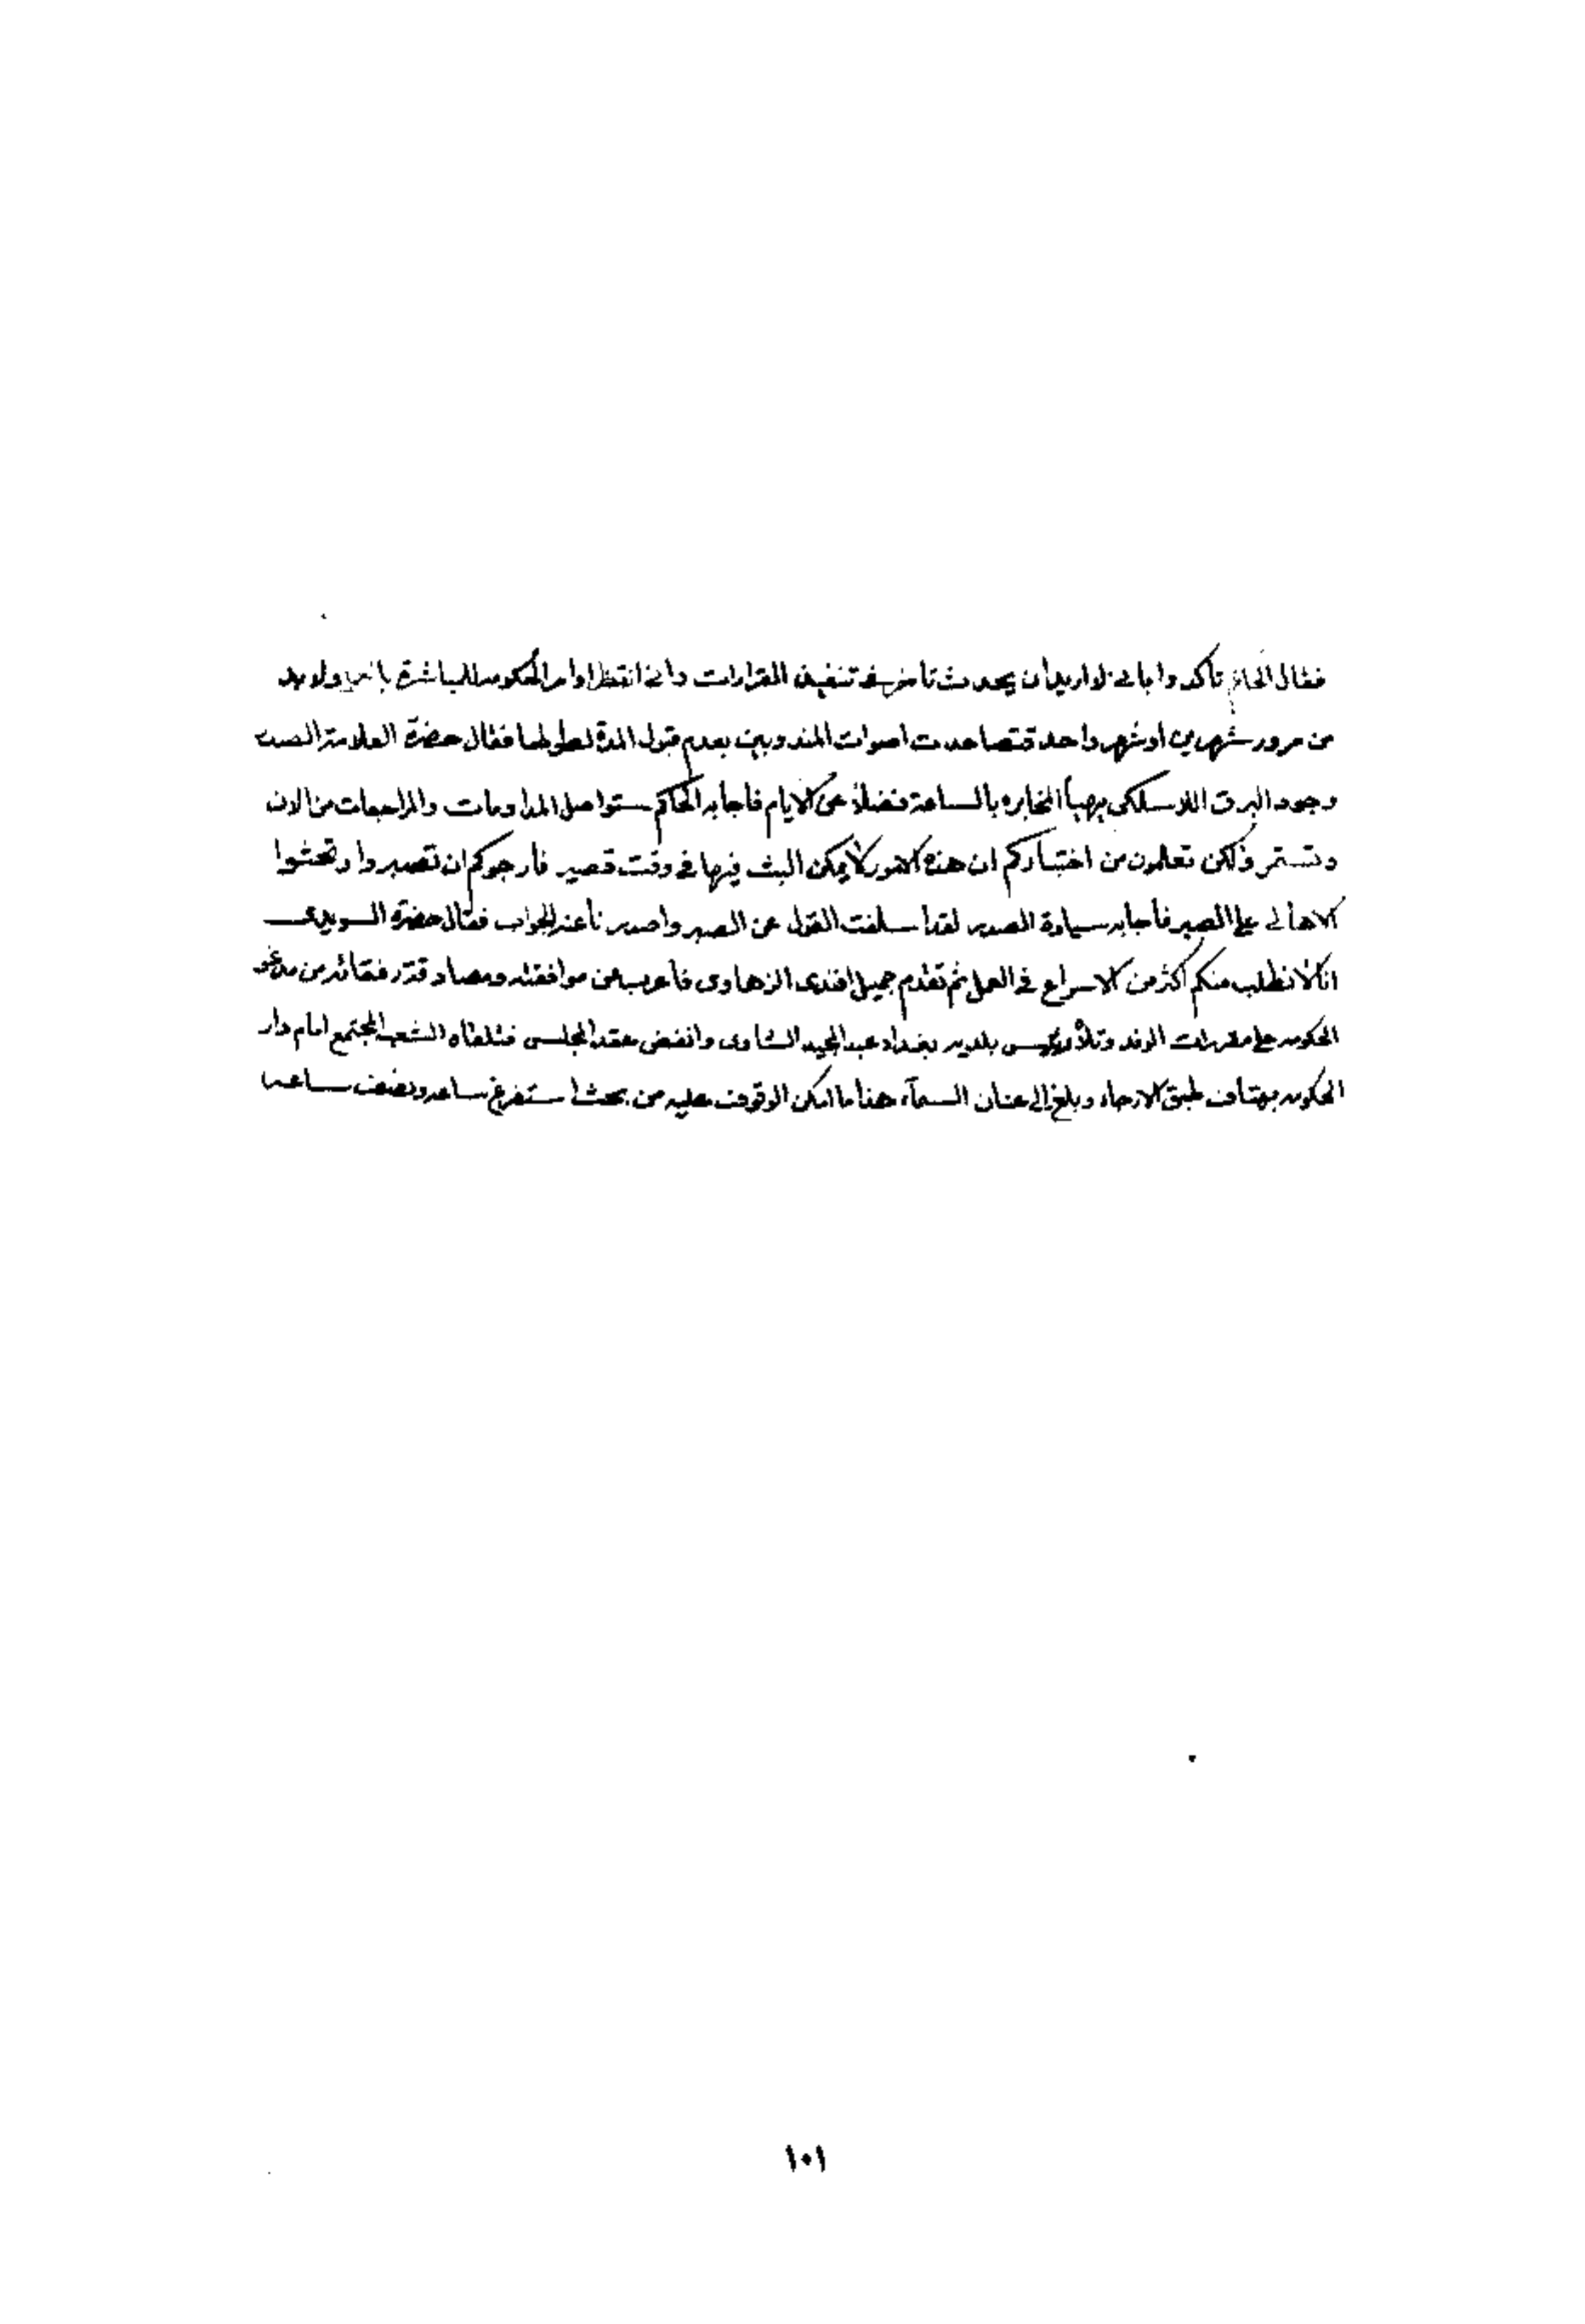 فقال الحاكم تأكدوا باني لا اريد ان يحدث تأخر في تنفيذ القرارات واني انتظر اوامر الحكومه للمباشرة ولا بد
من مرور شهرين او شهر واحد فتصاعدت اصوات المندوبين بعدم قبول المدة لطولها فقال حضرة العلامة الصدر
وجود البرق اللاسلكي يهيأ المخابره بالساعة فضلاً عن الايام فاجابه الحاكم ستواصل المداومات والمراجعات من الان
وتستمر ولكن تعلمون من اختباركم ان هذه الامور لا يمكن البث فيها في وقت قصير فأرجوكم ان تصبروا وتحثوا
الاهالي على الصبر فأجابه سيادة الصدر لقد اسلفت القول عن الصبر واصدرنا عنه الجواب فقال حضرة السويدي
انا لا نطلب منكم اكثر من الاسراع في العمل ثم تقدم جميل افندي الزهاوي فأعرب عن موافقته ومصادقة رفقائه من مدعوي
الحكومه على مقررات الوفد وتلاه رئيس بلدية بغداد عبد المجيد الشاوي وانفض عقد المجلس فتلقاه الشعب المجتمع امام دار
الحكومه بهتاف طبق الارجاء وبلغ الى عنان السمآء هذا ما امكن الوقوف عليه من بحث استغرق ساعه ونصف ساعه
١٠١